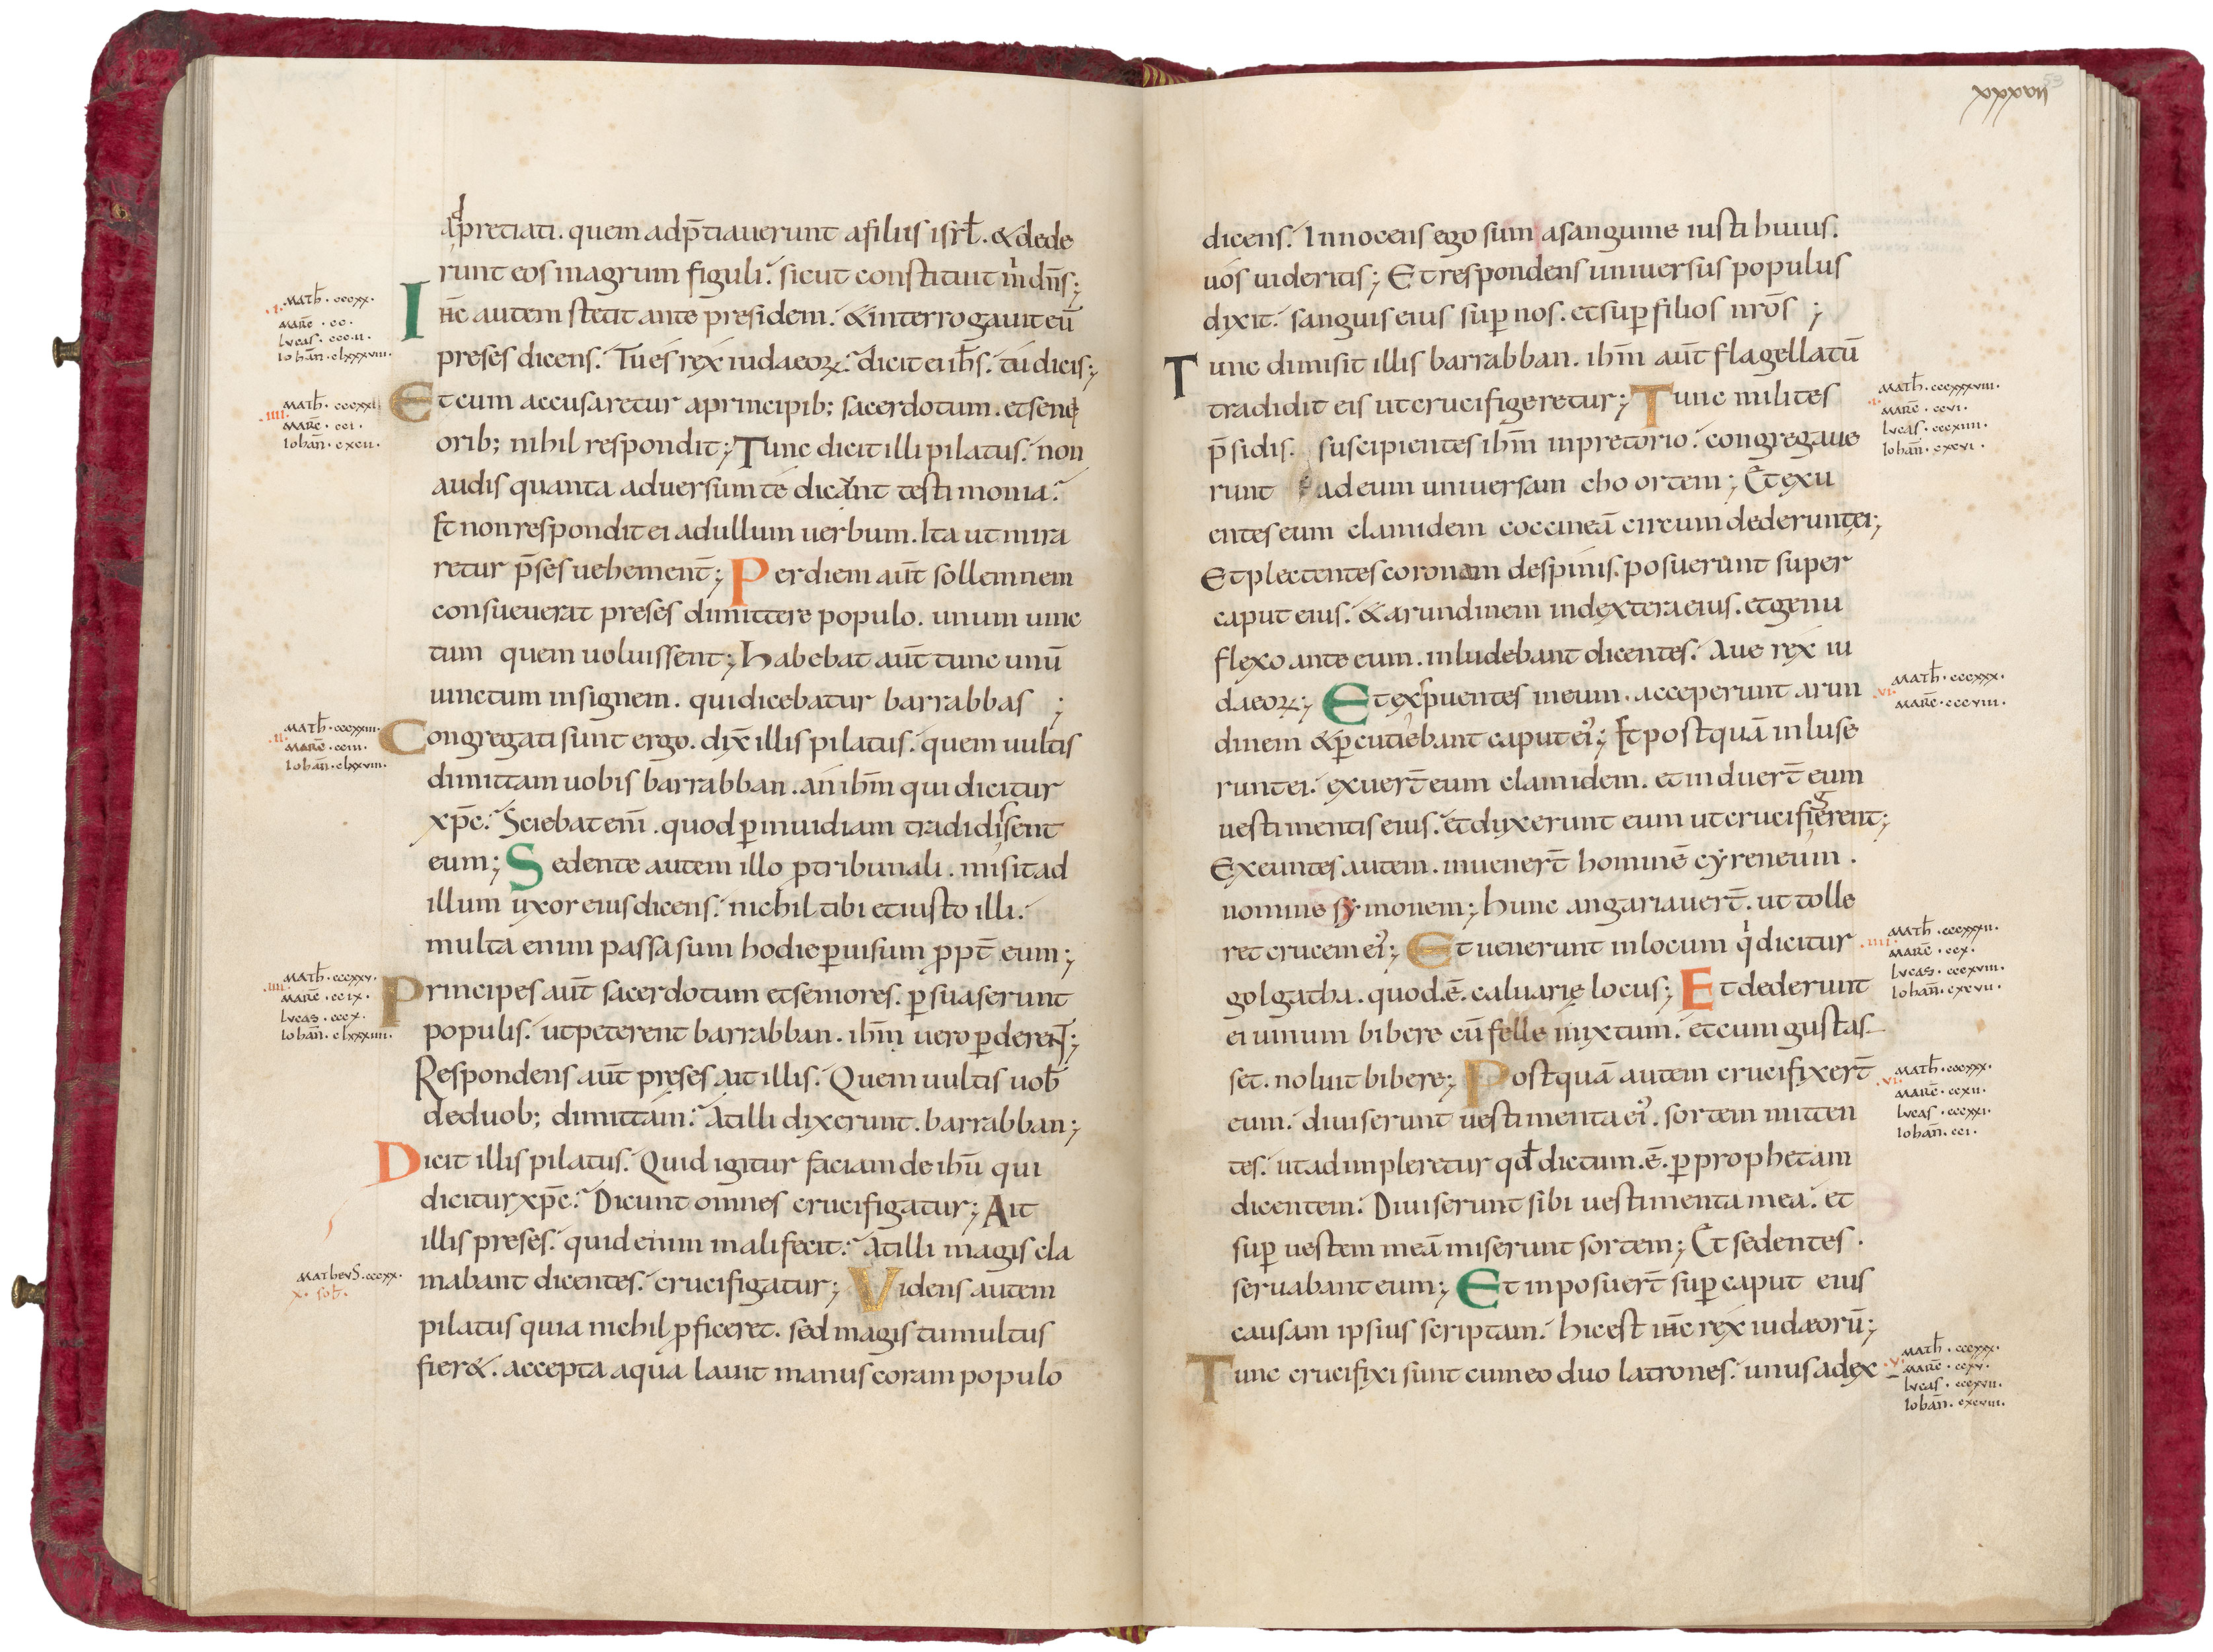 adpretiati. quem adp̄tiauerunt a filiis isrł. & dede
runt eos in agrum figuli. sicut constituit m̄ dn̄s;
Ih̄c autem stetit ante presidem. & interrogauit eū
preses dicens. Tu es rex iudaeoꝝ. dicit ei ih̄s. tu dicis;
Et cum accusaretur a principib; sacerdotum. et seni
orib; nihil respondit; Tunc dicit illi pilatus. non
audis quanta aduersum te dicant testimonia.
Et non respondit ei ad ullum uerbum. Ita ut mira
retur p̄ses uehement̄; Per diem aut̄ sollemnem
consueuerat preses dimittere populo. unum uinc
tum quem uoluissent; Habebat aut̄ tunc unū
uinctum insignem. qui dicebatur barrabbas ;
Congregati sunt ergo. dix̄ illis pilatus. quem uultis
dimittam uobis barrabban. an ih̄m qui dicitur
xp̄c. Sciebat eni̅. quod ꝑ inuidiam tradidissent
eum; Sedente autem illo ꝓ tribunali. misit ad
illum uxor eius dicens. nichil tibi et iusto illi.
multa enim passa sum hodie ꝑ uisum ꝓpt̄ eum;
Principes aut̄ sacerdotum et seniores. ꝑsuaserunt
populis. ut peterent barrabban. ih̄m uero ꝑderent;
Respondens aut̄ preses ait illis. Quem uultis uob̄
de duob; dimittam. At illi dixerunt. barrabban;
Dicit illis pilatus. Quid igitur faciam de ih̄u qui
dicitur xp̄c. Dicunt omnes crucifigatur; Ait
illis preses. quid enim mali fecit. At illi magis cla
mabant dicentes. crucifigatur; Videns autem
pilatus quia nichil ꝓficeret. sed magis tumultus
fier&. accepta aqua lauit manus coram populo
Math̄. cccxx.
.i.
Marc̄. cc.
Lucas. ccc.ii.
Iohan̄. clxxxviii.
Math̄. cccxxi
.iiii.
Marc̄. cci.
Iohan̄. cxcii.
Math̄. cccxxiii.
.ii.
Marc̄. cciii.
Iohan̄. clxxviii.
Math̄. cccxxv.
.iiii.
Marc̄. ccix.
Lucas. cccx.
Iohan̄. clxxxiiii.
Matheus. cccxx.
x. sol̄.
xxxvii
53
dicens. Innocens ego sum a sanguine iusti huius.
uos uideritis; Et respondens uniuersus populus
dixit. sanguis eius suꝑ nos. et suꝑ filios nr̄os ;
Tunc dimisit illis barrabban. ih̄m aut̄ flagellatū
tradidit eis ut crucifigeretur; Tunc milites
p̄sidis. suscipientes ih̄m in pretorio. congregaue
runt ad eum uniuersam cho ortem; Et exu
entes eum clamidem coccineā circumdederunt ei;
Et plectentes coronam de spinis. posuerunt super
caput eius. & arundinem in dextera eius. et genu
flexo ante eum. inludebant dicentes. Aue rex iu
daeoꝝ; Et exspuentes in eum. acceperunt arun
dinem & ꝑcutiebant caput ei᾿; Et postquā inluse
runt ei. exuert̄ eum clamidem. et induert̄ eum
uestimentis eius. et duxerunt eum ut crucifigerent;
Exeuntes autem. inuenert̄ hominē cyreneum.
nomine symonem; hunc angariauert̄. ut tolle
ret crucem ei᾿; Et uenerunt in locum qi dicitur
golgatha. quod .ē. caluarię locus; Et dederunt
ei uinum bibere cū felle mixtum. et cum gustas
set. noluit bibere; Postquā autem crucifixert̄
eum. diuiserunt uestimenta ei᾿. sortem mitten
tes. ut adimpleretur qđ dictum .ē. ꝑ prophetam
dicentem. Diuiserunt sibi uestimenta mea. et
suꝑ uestem meā miserunt sortem; Et sedentes.
seruabant eum; Et inposuert̄ suꝑ caput eius
causam ipsius scriptam. hic est ih̄c rex iudæorū;
Tunc crucifixi sunt cum eo duo latrones. unus a dex
Math̄. cccxxviii.
.i.
Marc̄. ccvi.
Lucas. cccxiiii.
Iohan̄. cxcvi.
Math̄. cccxxx.
.vi.
Marc̄. cccviii.
Math̄. cccxxxii.
.iiii.
Marc̄. ccx.
Lucas. cccxviii.
Iohan̄. cxcvii.
Math̄. cccxxx.
.vi.
Marc̄. ccxii.
Lucas. cccxxi.
Iohan̄. cci.
Math̄. cccxxx.
.v.
Marc̄. ccxv.
Lucas. cccxvii.
Iohan̄. cxcviii.